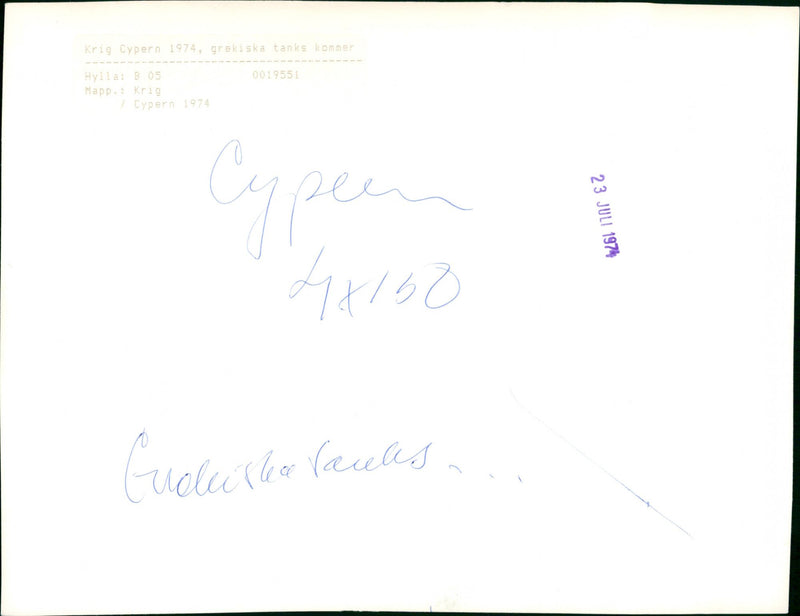 Krig Cypern 1974, grekiska tanks kommer
Hylla: B 05 0019551
Mapp.: Krig
/ Cypern 1974
Cypern
4x150
23 JULI 1974
Grekiska tanks ....